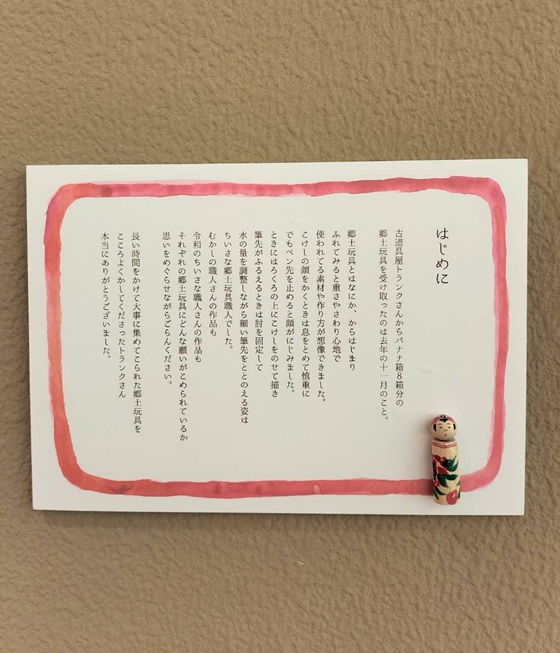 はじめに
古道具屋トランクさんからバナナ箱8箱分の
郷土玩具を受け取ったのは去年の十一月のこと。
郷土玩具とはなにか、からはじまり
ふれてみると重さやさわり心地で
使われてる素材や作り方が想像できました。
こけしの顔をかくときは息をとめて慎重に
でもペン先を止めると顔がにじみました。
ときにはろくろの上にこけしをのせて描き
筆先がふるえるときは肘を固定して
水の量を調整しながら細い筆先をととのえる姿は
ちいさな郷土玩具職人でした。
むかしの職人さんの作品も
令和のちいさな職人さんの作品も
それぞれの郷土玩具にどんな願いがこめられているか
思いをめぐらせながらごらんください。
長い時間をかけて大事に集めてこられた郷土玩具を
こころよくかしてくださったトランクさん
本当にありがとうございました。